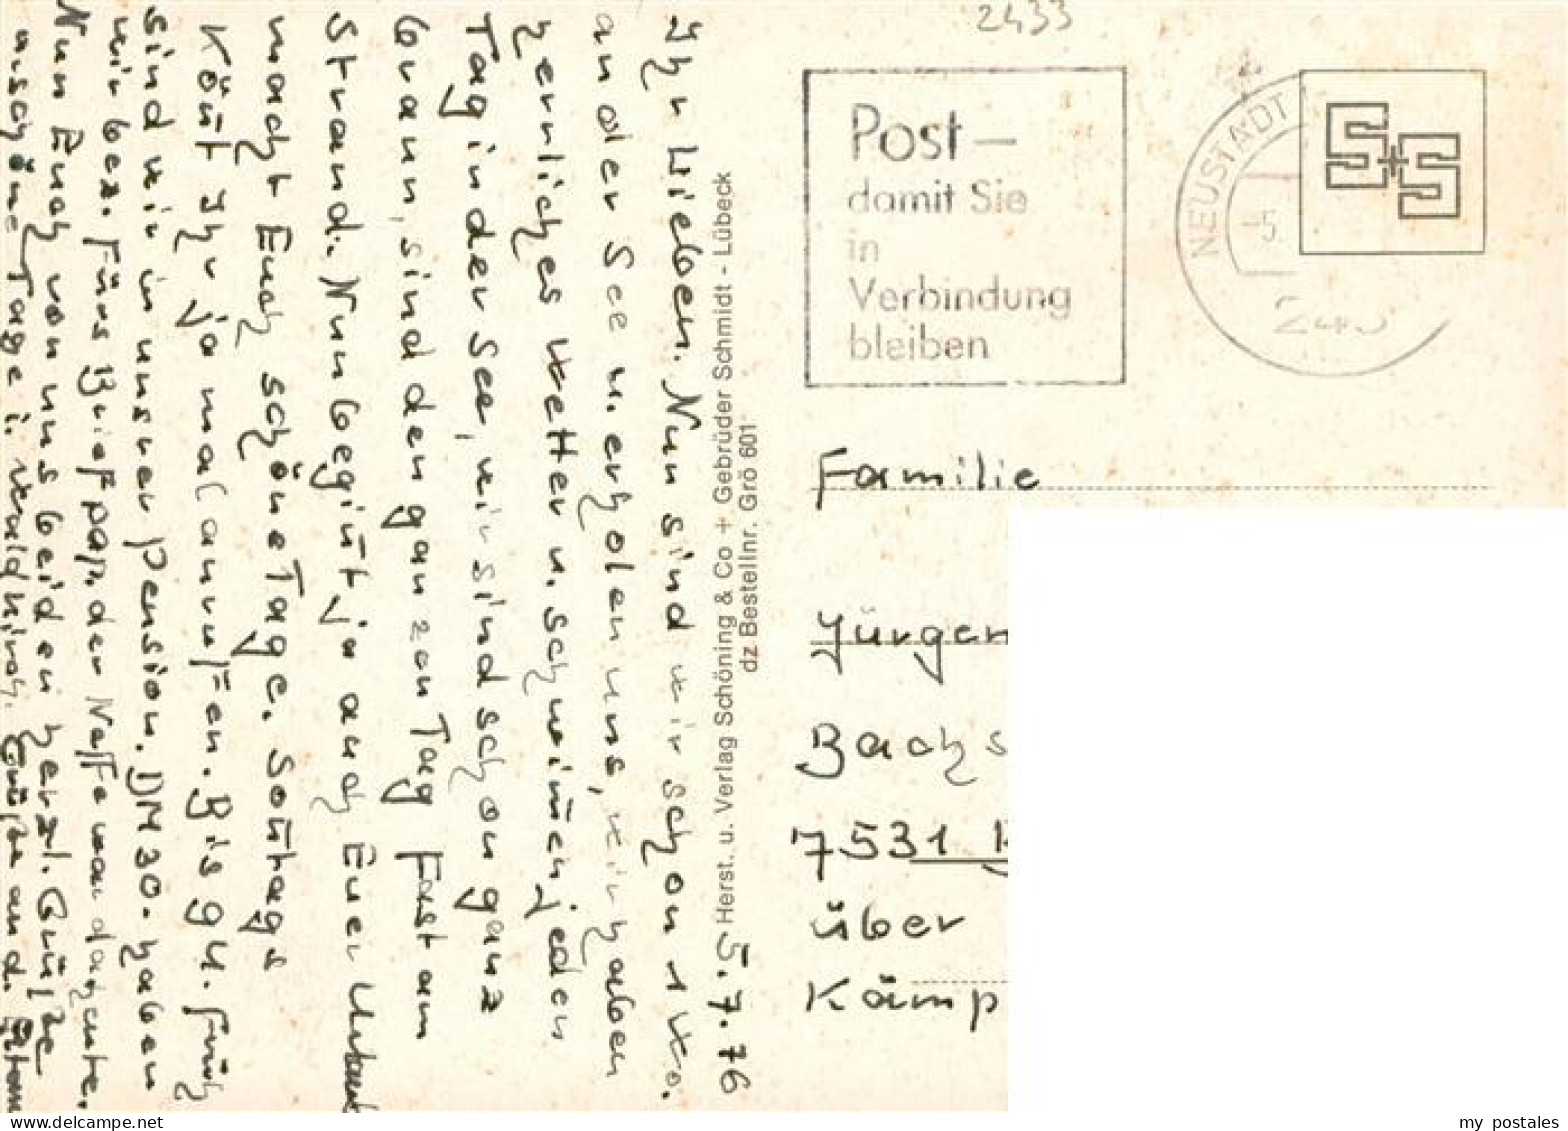 2433
Post –
damit Sie
in
Verbindung
bleiben
NEUSTADT
-5.
S+S
Herst. u. Verlag Schöning & Co + Gebrüder Schmidt - Lübeck
dz Bestellnr. Grö 601
5.7.76
Ihr Lieben. Nun sind wir schon 1 Wo.
an der See u. erholen uns, wir haben
herrliches Wetter u. schwim̅en jeden
Tag in der See, wir sind schon ganz
braun, sind den ganzen Tag fast am
Strand. Nun begin̅t ja auch Euer Urlaub
macht Euch schöne Tage. Son̅tags
kön̅t Ihr ja mal anruffen. Bis 9 U. früh
sind wir in unsrer Pension. DM 30.- haben
wir bez. Fürs Briefpap. der Neffe war da heute.
Nun Euch von uns beiden herzl. Grüße
u. schöne Tage i. Grüße an d.
Familie
Jürgen
Bachs
7531
über
Kämp
my postales